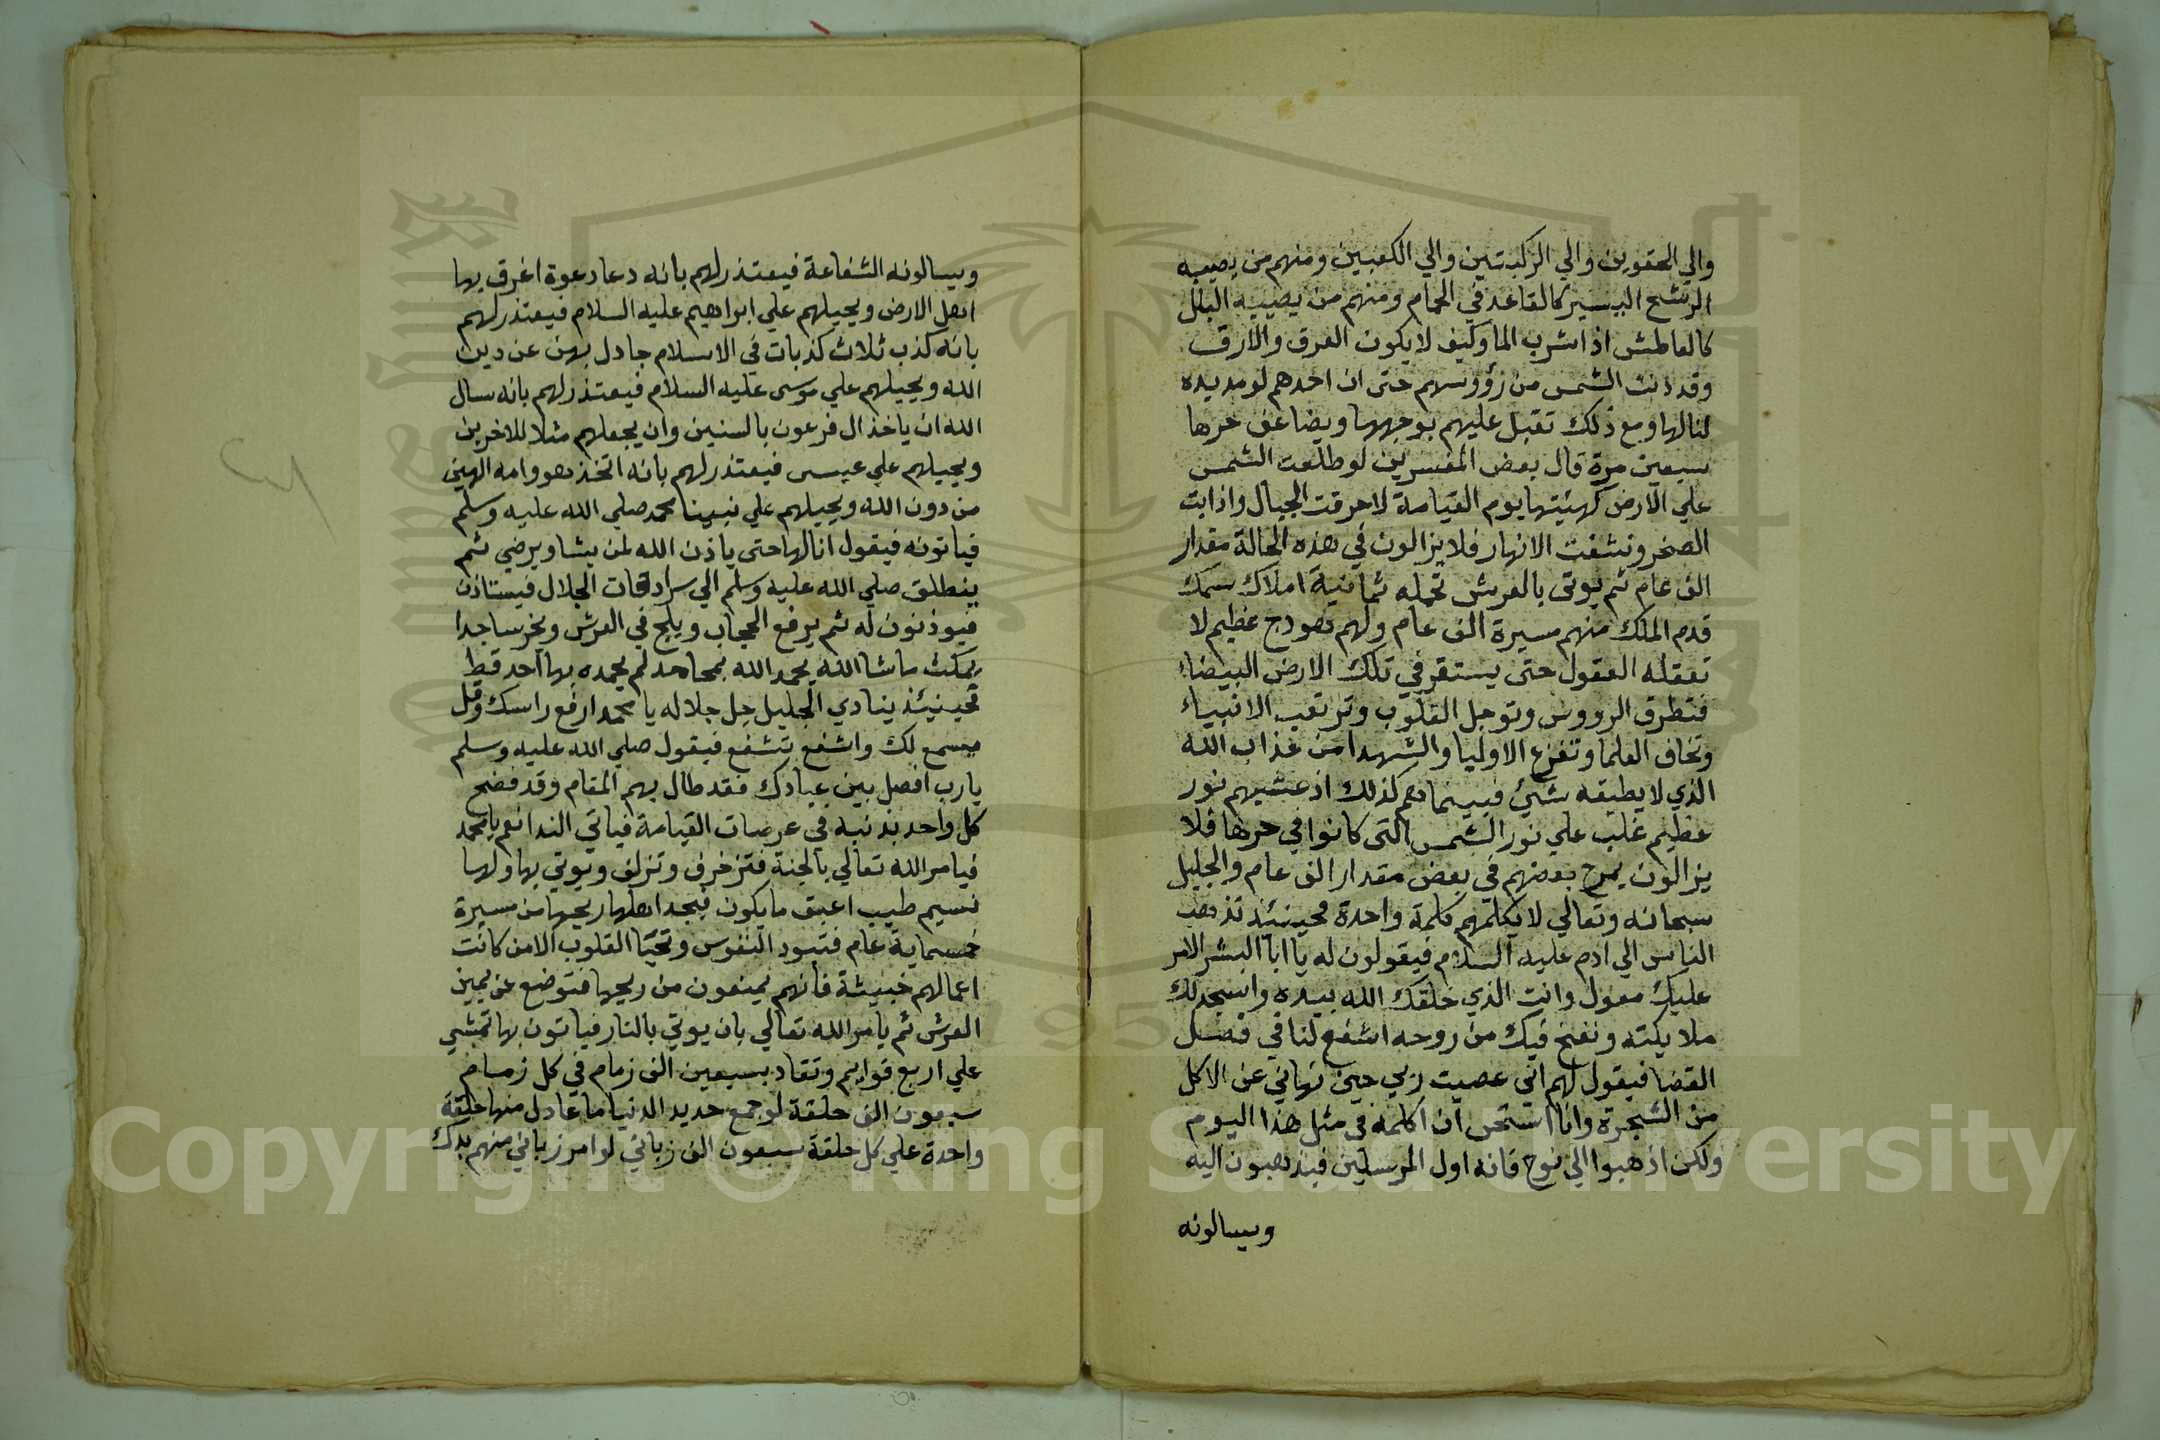 والي الحقوين والي الركبتين والي الكعبين ومنهم من يصيبه
الرشح اليسير كالقاعد في الحمام ومنهم من يصيبه البلل
كالعاطش اذا شرب الما وكيف لا يكون العرق والارق
وقد دنت الشمس من رؤوسهم حتى ان احدهم لو مد يده
لنالها ومع ذلك تقبل عليهم بوجهها ويضاعف حرها
سبعين مرة قال بعض المفسرين لو طلعت الشمس
علي الارض كهيئتها يوم القيامة لاحرقت الجبال واذابت
الصخر ونشفت الانهار فلا يزالون في هذه الحالة مقدار
الف عام ثم يوتى بالعرش تحمله ثمانية املاك سمك
قدم الملك منهم مسيرة الف عام ولهم هودج عظيم لا
تعقله العقول حتى يستقر في تلك الارض البيضاء
فتطرق الرووس وتوجل القلوب وترتعب الانبياء
وتخاف العلما وتفزع الاوليا والشهدا من عذاب الله
الذي لا يطيقه شئ فبينما هم كذلك اذ عشيهم نور
عظيم غلب علي نور الشمس التى كانوا في حرها فلا
يزالون يموج بعضهم في بعض مقدار الف عام والجليل
سبحانه وتعالي لا يكلمهم كلمة واحدة فحينئذ تذهب
الناس الي ادم عليه السلام فيقولون له يا ابا البشر الامر
عليك معول وانت الذي خلقك الله بيده واسجد لك
ملايكته ونفخ فيك من روحه اشفع لنا في فصل
القضا فيقول لهم اني عصيت ربي حين نهاني عن الاكل
من الشجرة وانا استحى ان اكلمه في مثل هذا اليوم
ولكن اذهبوا الي نوح فانه اول المرسلين فيذهبون اليه
ويسالونه
ويسالونه الشفاعة فيعتذر لهم بانه دعا دعوة اغرق بها
اهل الارض ويحيلهم علي ابراهيم عليه السلام فيعتذر لهم
بانه كذب ثلاث كذبات في الاسلام جادل بهن عن دين
الله ويحيلهم علي موسى عليه السلام فيعتذر لهم بانه سال
الله ان ياخذ ال فرعون بالسنين وان يجعلهم مثلا للاخرين
ويحيلهم علي عيسى فيعتذر لهم بانه اتخذ هو وامه الهين
من دون الله ويحيلهم علي نبينا محمد صلي الله عليه وسلم
فياتونه فيقول انا لها حتى ياذن الله لمن يشا ويرضي ثم
ينطلق صلي الله عليه وسلم الي سرادقات الجلال فيستاذن
فيوذنون له ثم يرفع الحجاب ويلج في العرش ويخر ساجدا
يمكث ماشا الله يحمد الله بمحامد لم يحمده بها احد قط
فحينئذ ينادي الجليل جل جلاله يا محمد ارفع راسك وقل
يسمع لك واشفع تشفع فيقول صلي الله عليه وسلم
يارب افصل بين عبادك فقد طال بهم المقام وقد فضح
كل واحد بذنبه في عرصات القيامة فياتي الندا نعم يا محمد
فيامر الله تعالي بالجنة فتزخرف وتزلف ويوتي بها ولها
نسيم طيب اعبق ما يكون فيجد اهلها ريحها من مسيرة
خمسماية عام فتبرد النفوس وتحيا القلوب الا من كانت
اعمالهم خبيثة فانهم يمنعون من ريحها فتوضع عن يمين
العرش ثم يامر الله تعالي بان يوتي بالنار فياتون بها تمشي
علي اربع قوايم وتقاد بسبعين الف زمام في كل زمام
سبعون الف حلقة لو جمع حديد الدنيا ما عادل منها حلقة
واحدة علي كل حلقة سبعون الف زباني لو امر زباني منهم بدك
King Saud University
1957
Copyright © King Saud University